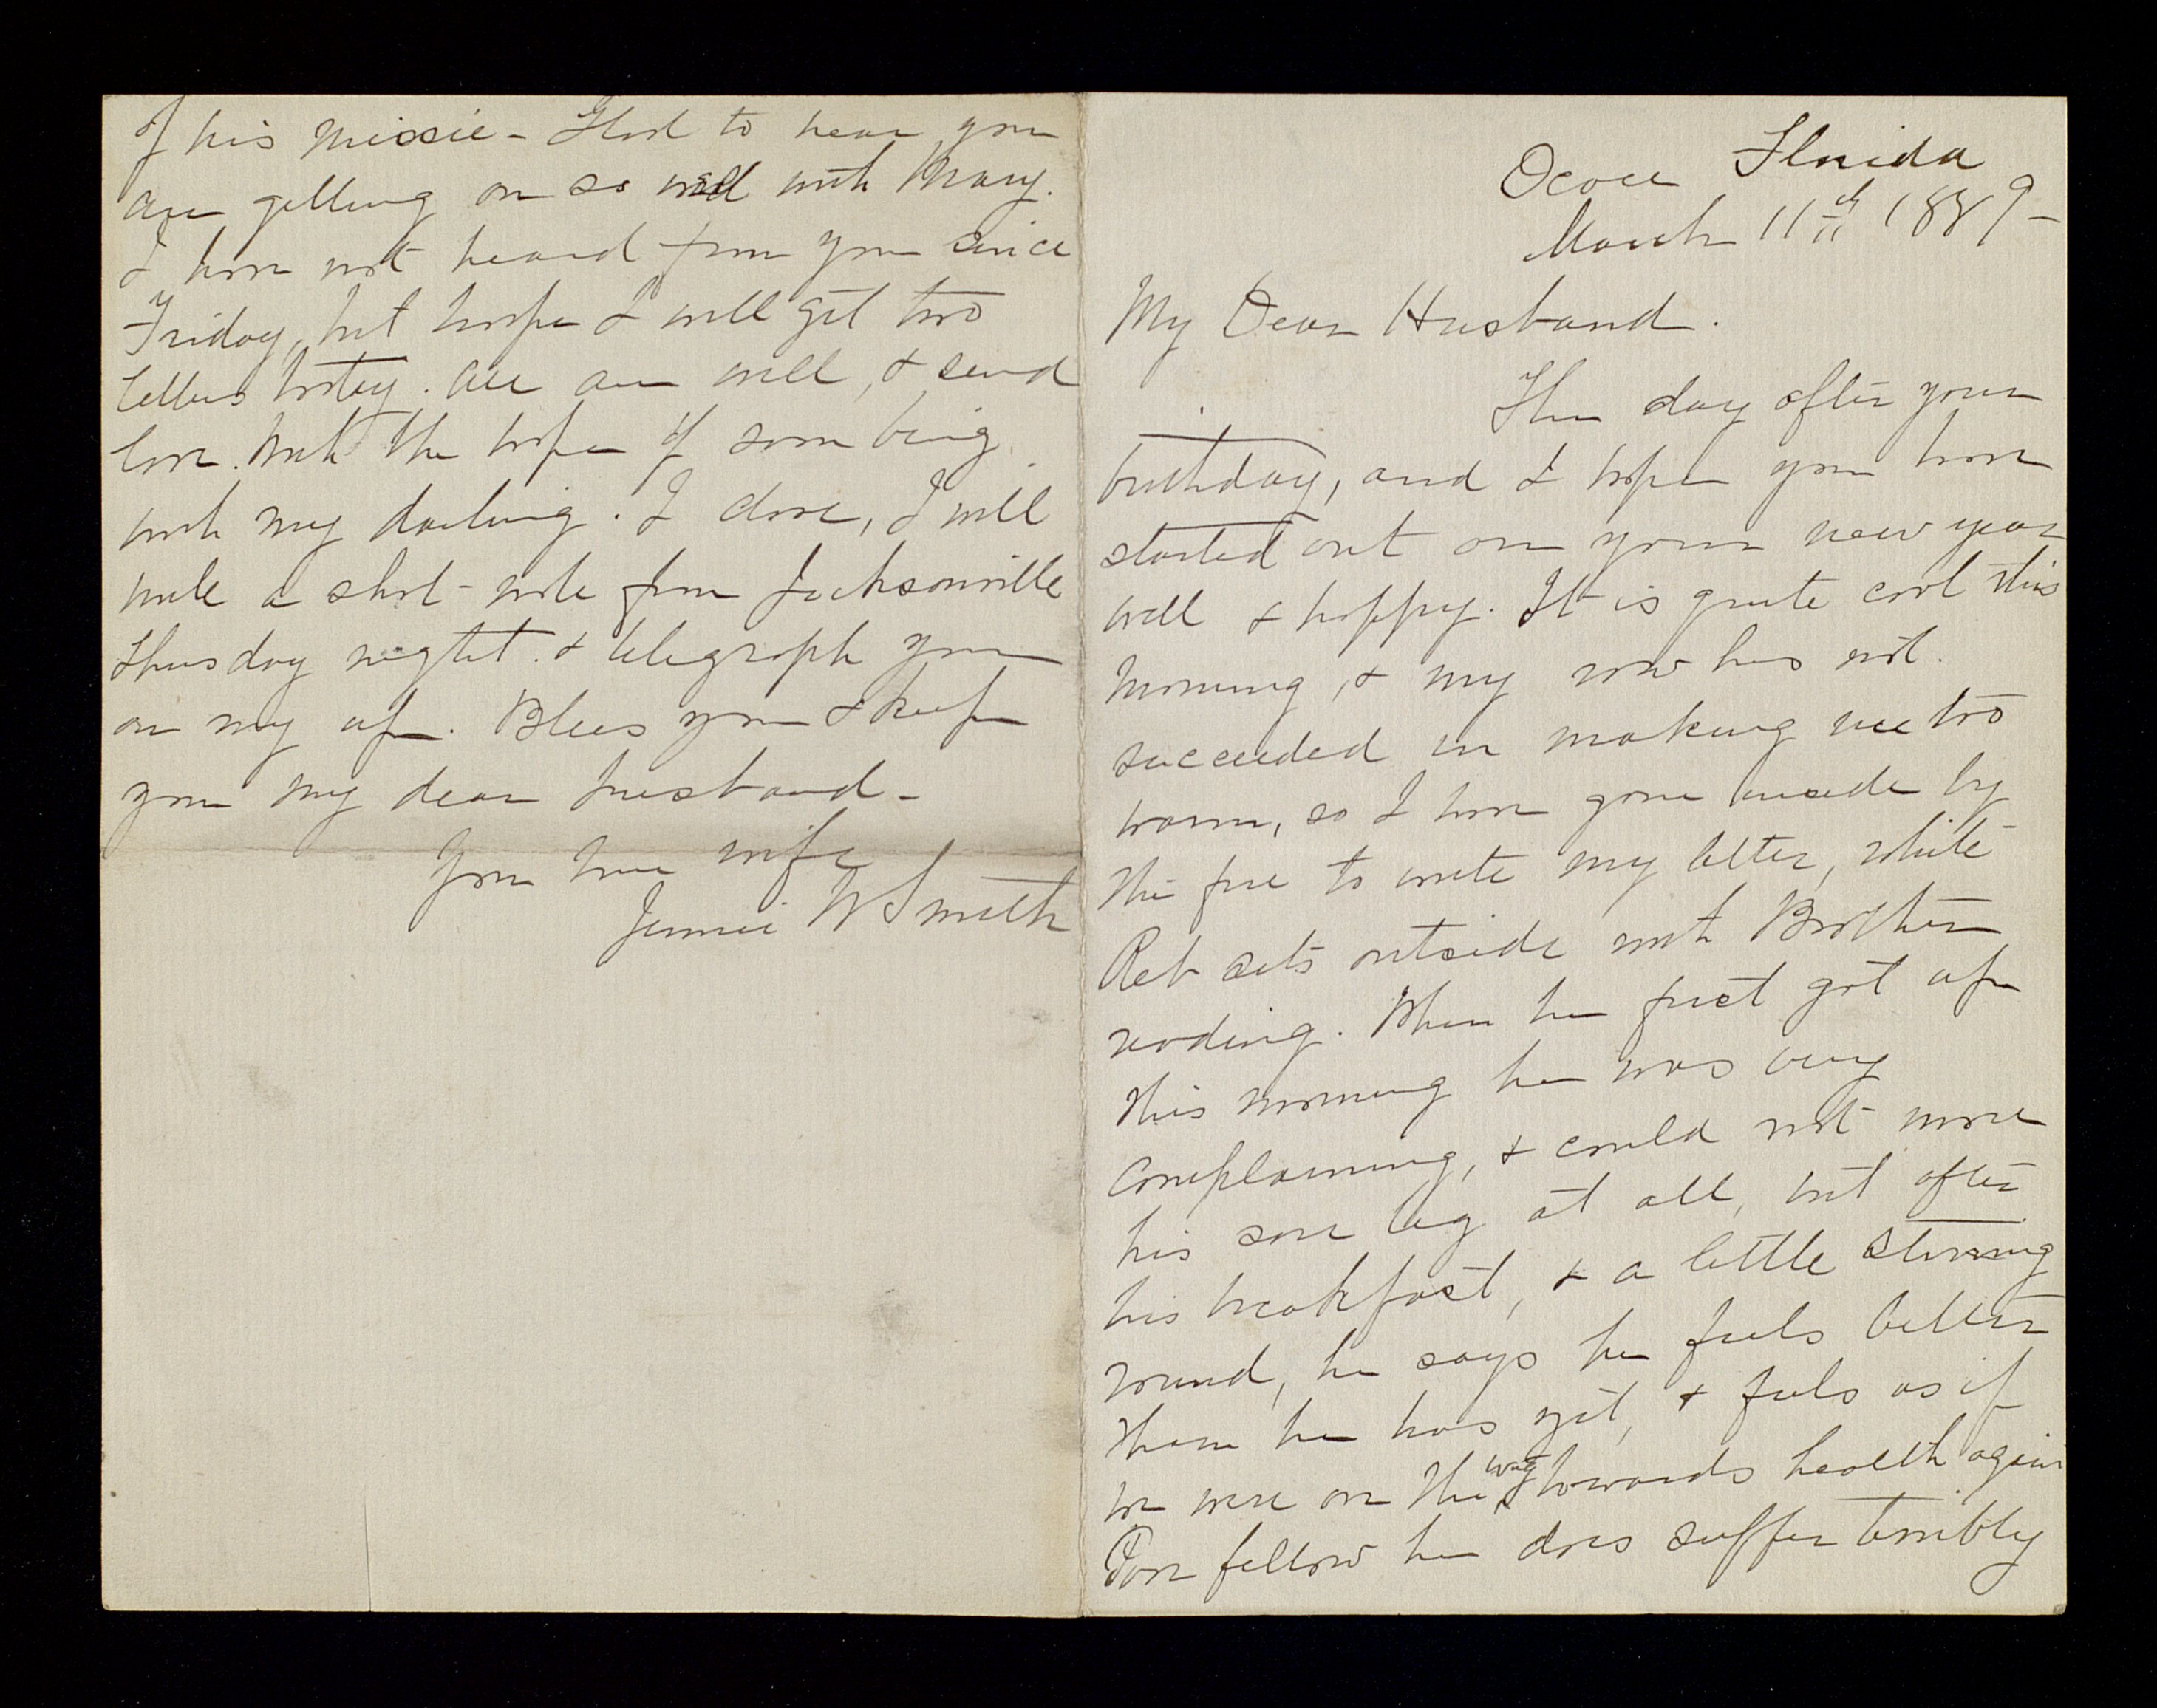 Ocoee Florida
March 11th 1889-
My Dear Husband.
The day after your
birthday, and I hope you have
started out on your new year
well & happy. It is quite cool this
morning, & my row has not
succeeded in making me too
warm, so I have gone inside by
the fire to write my letter, while
Reb sits outside with Brother
reading. When he first got up
this morning he was very
complaining, & could not move
his sore leg at all, but after
his breakfast, & a little stirring
round, he says he feels better
than he has yet, & feels as if
we were on the way towards health again
Poor fellow he does suffer terribly
of his Missie - Glad to hear you
are getting on so well with Mary.
I have not heard from you since
Friday, but hope I will get two
letters today. All are well, & send
love. With the hope of soon being
with my darling. I close, I will
write a short note from Jacksonville
Thursday night. & telegraph you
on my up. Bless you & keep
you my dear husband -
Your true wife
Jennie W Smith